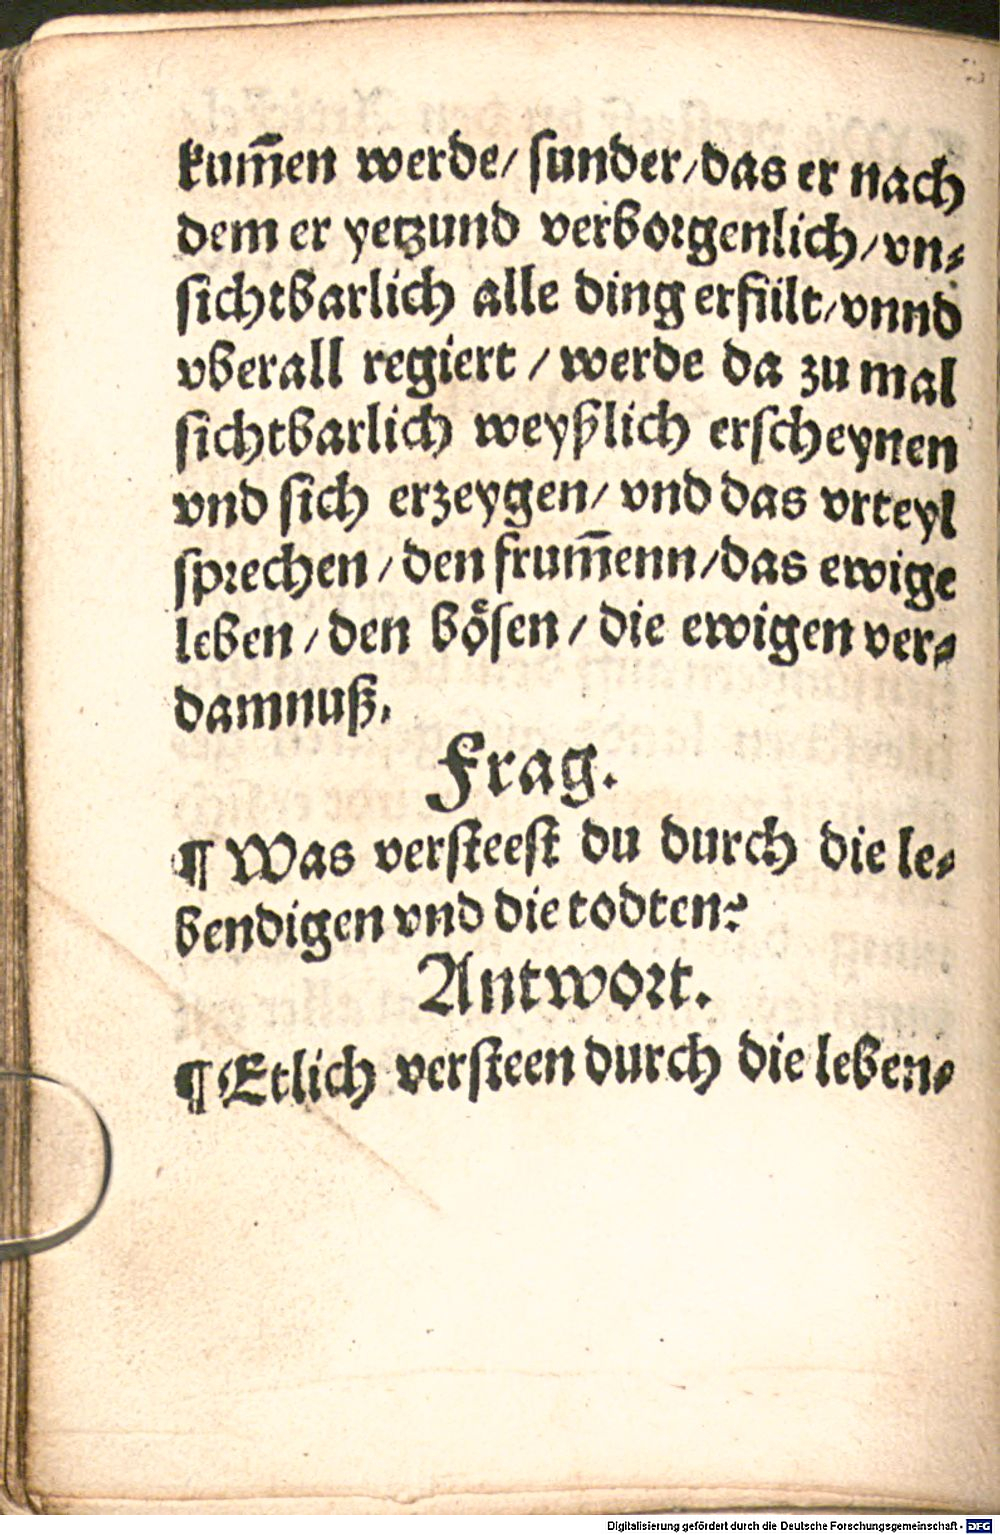 kum̃en werde/ sunder/das er nach
dem er yetzund verborgenlich/vn⸗
sichtbarlich alle ding erfült/vnnd
vberall regiert / werde da zu mal
sichtbarlich weyßlich erscheynen
vnd sich erzeygen/ vnd das vrteyl
sprechen / den frum̃enn/das ewige
leben / den bösen / die ewigen ver⸗
damnuß.
Frag.
¶ Was versteest du durch die le⸗
bendigen vnd die todten?
Antwort.
¶ Etlich versteen durch die leben⸗
Digitalisierung gefördert durch die Deutsche Forschungsgemeinschaft - DFG